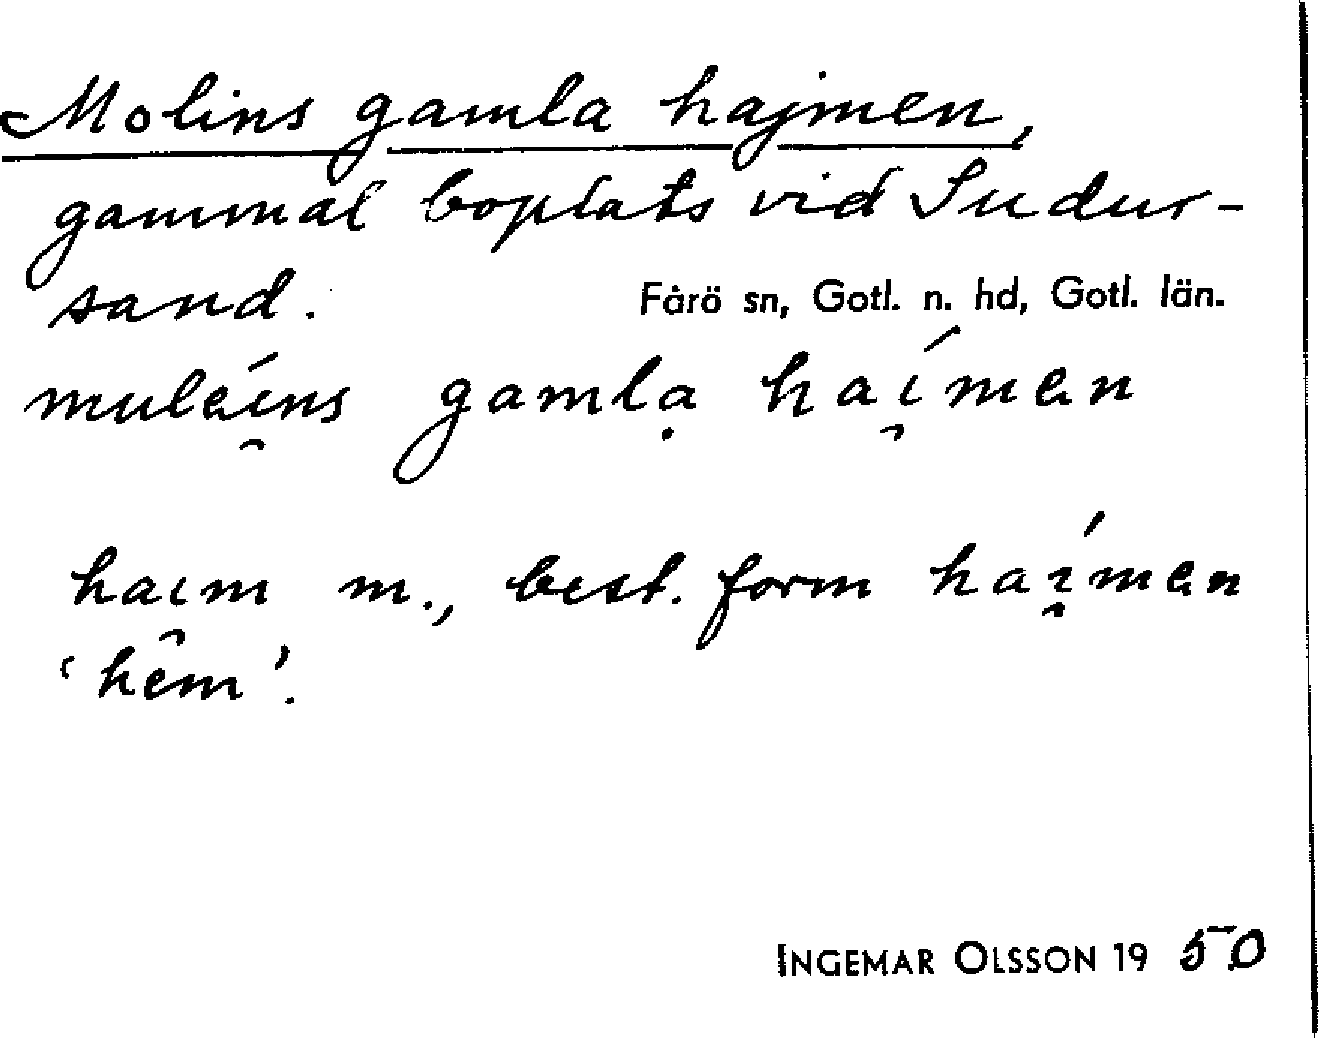 Molins gamla hajmen,
gammal boplats vid Sudur-
sand.
Fårö sn, Gotl. n. hd, Gotl. län.
muleí̯ns gamlạ haí̯men
hai̯m m., best. form haí̯men
'hem'.
INGEMAR OLSSON 19 50